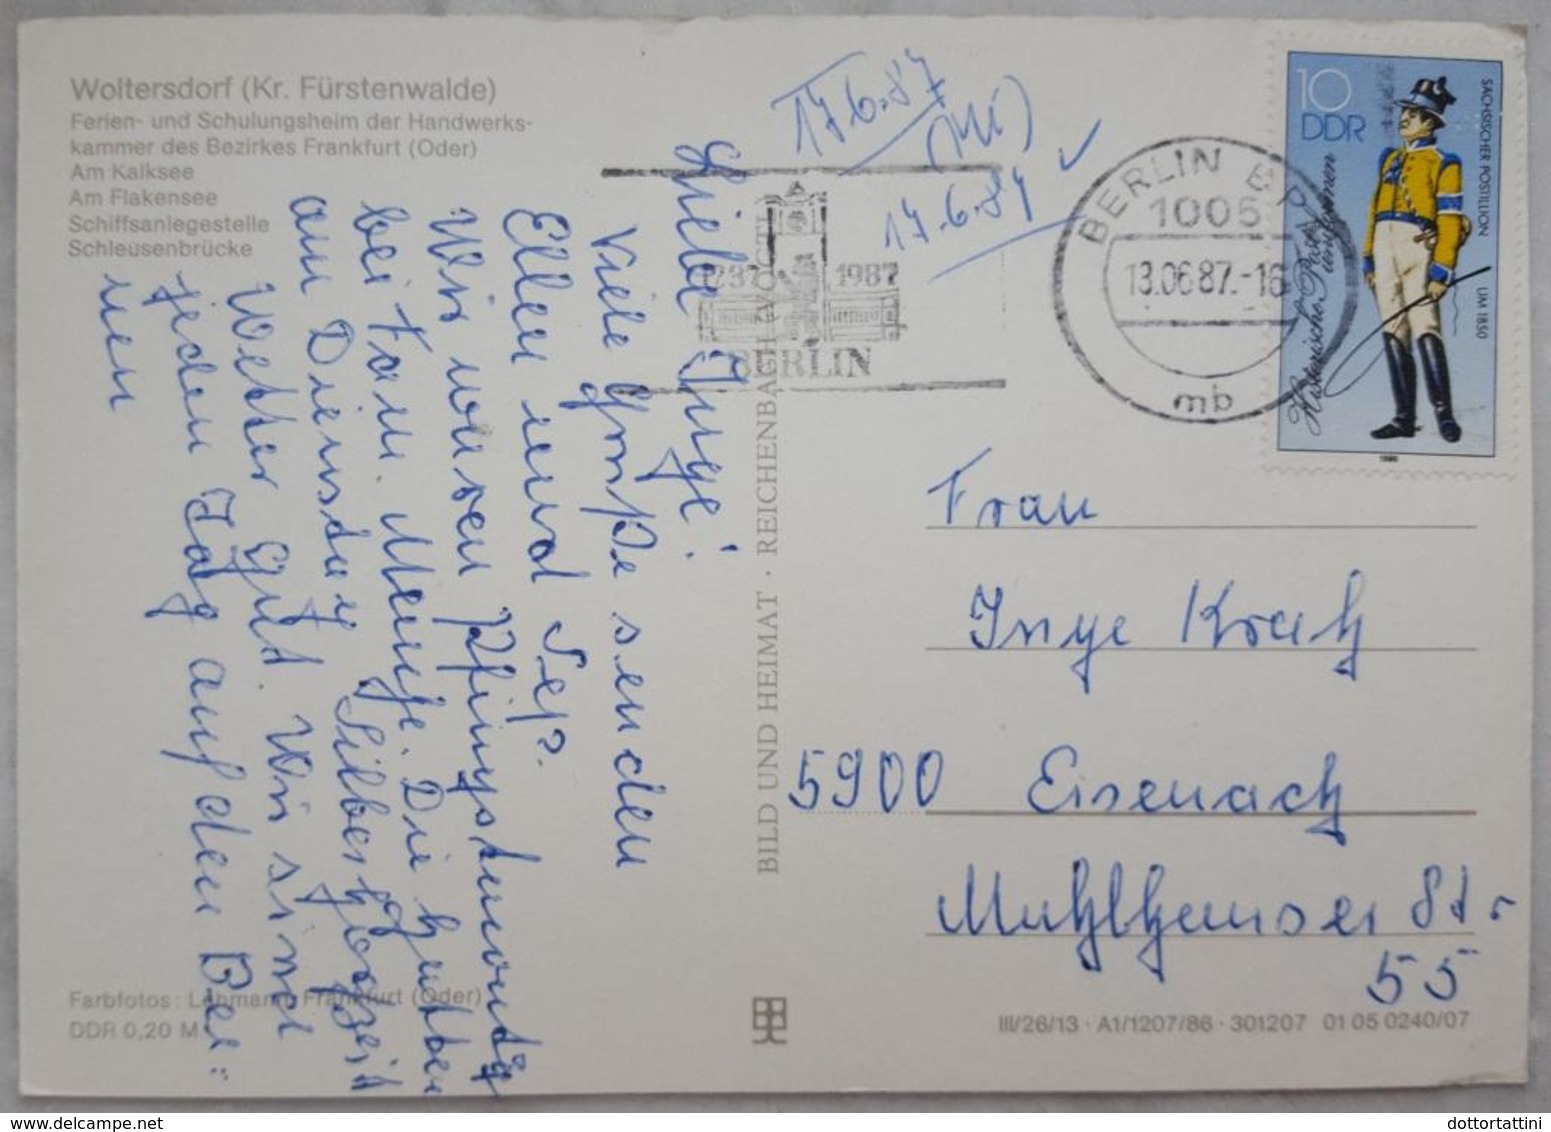 Woltersdorf (Kr. Fürstenwalde)
Ferien- und Schulungsheim der Handwerks-
kammer des Bezirkes Frankfurt (Oder)
Am Kalksee
Am Flakensee
Schiffsanlegestelle
Schleusenbrücke
Liebe Inge!
Viele Grüße senden
Ellen und Sep?
Wir waren Pfingstsonntag
bei Fam. Menge. Die hatten
am Dienstag Silberhochzeit
Wetter gut. Wir sind
jeden Tag auf den Bei=
nen
Farbfotos: Lehmann, Frankfurt (Oder)
DDR 0,20 M
BILD UND HEIMAT · REICHENBACH (VOGTL)
17.6.87
17.6.87
1237 1987
BERLIN
BERLIN BPA
1005
13.06.87.-16
mb
10
DDR
SÄCHSISCHER POSTILLION UM 1850
Historische Postuniformen
1986
Frau
Inge Kratz
5900 Eisenach
Muhlhauser St.
55
III/26/13 · A1/1207/86 · 301207 01 05 0240/07
dottortattini